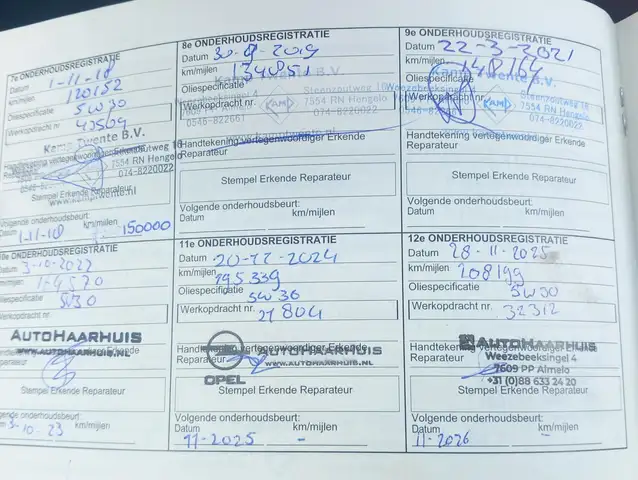 7e ONDERHOUDSREGISTRATIE
Datum 1-11-18
km/mijlen 120152
Oliespecificatie 5W30
Werkopdracht nr. 43569
Kamp Twente B.V.
7554 RN Hengelo
074-8220022
Stempel Erkende Reparateur
www.kamptwente.nl
Volgende onderhoudsbeurt:
Datum km/mijlen
1-11-18 150000
8e ONDERHOUDSREGISTRATIE
Datum 30-8-2019
km/mijlen 134857
Oliespecificatie
Kamp Twente B.V.
Steenzoutweg 16
7554 RN Hengelo
074-8220022
0546-822661
KAMP
Werkopdracht nr.
www.kamptwente.nl
Handtekening vertegenwoordiger Erkende
Reparateur
Stempel Erkende Reparateur
Volgende onderhoudsbeurt:
Datum km/mijlen
9e ONDERHOUDSREGISTRATIE
Datum 22-3-2021
km/mijlen 148164
Oliespecificatie
Kamp Twente B.V.
Weezebeeksingel 4
Steenzoutweg 16
7554 RN Hengelo
074-8220022
KAMP
Werkopdracht
Handtekening vertegenwoordiger Erkende
Reparateur
Stempel Erkende Reparateur
Volgende onderhoudsbeurt:
Datum km/mijlen
ONDERHOUDSREGISTRATIE
Datum 3-10-2022
km/mijlen
Oliespecificatie 5W30
Werkopdracht nr.
AUTOHAARHUIS
WWW.AUTOHAARHUIS.NL
Stempel Erkende Reparateur
Volgende onderhoudsbeurt:
km/mijlen
3-10-23
11e ONDERHOUDSREGISTRATIE
Datum 20-12-2024
km/mijlen 195339
Oliespecificatie 5W30
Werkopdracht nr. 27804
Handtekening vertegenwoordiger Erkende
Reparateur
AUTOHAARHUIS
WWW.AUTOHAARHUIS.NL
OPEL
Stempel Erkende Reparateur
Volgende onderhoudsbeurt:
Datum km/mijlen
11-2025 -
12e ONDERHOUDSREGISTRATIE
Datum 28-11-2025
km/mijlen 208199
Oliespecificatie 5W30
Werkopdracht nr. 32312
Handtekening vertegenwoordiger Erkende
Reparateur
AUTOHAARHUIS
Weezebeeksingel 4
7609 PP Almelo
+31 (0)88 633 24 20
Stempel Erkende Reparateur
Volgende onderhoudsbeurt:
Datum km/mijlen
11-2026 -